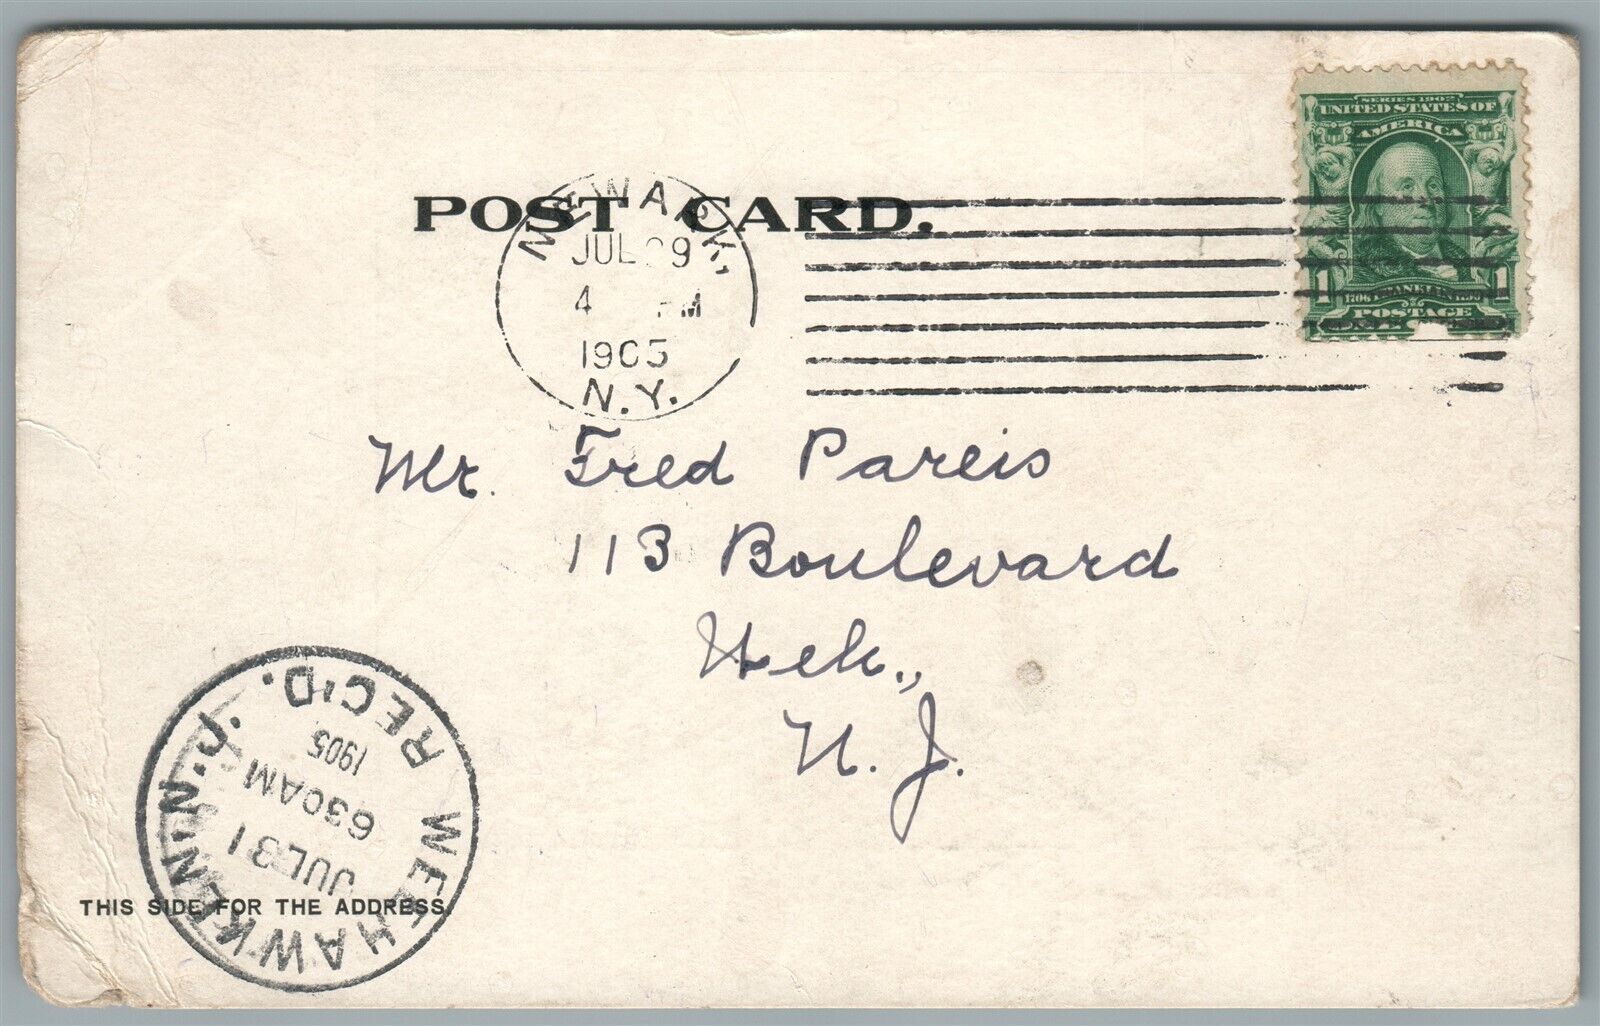 POST CARD.
NEWARK,
JUL 29
4 PM
1905
N.Y.
SERIES 1902
UNITED STATES OF
AMERICA
1 1706 FRANKLIN 1790 1
POSTAGE
Mr. Fred Pareis
113 Boulevard
Weh.,
N. J.
WEEHAWKEN, N.J.
REC'D.
JUL 31
630AM
1905
THIS SIDE FOR THE ADDRESS.